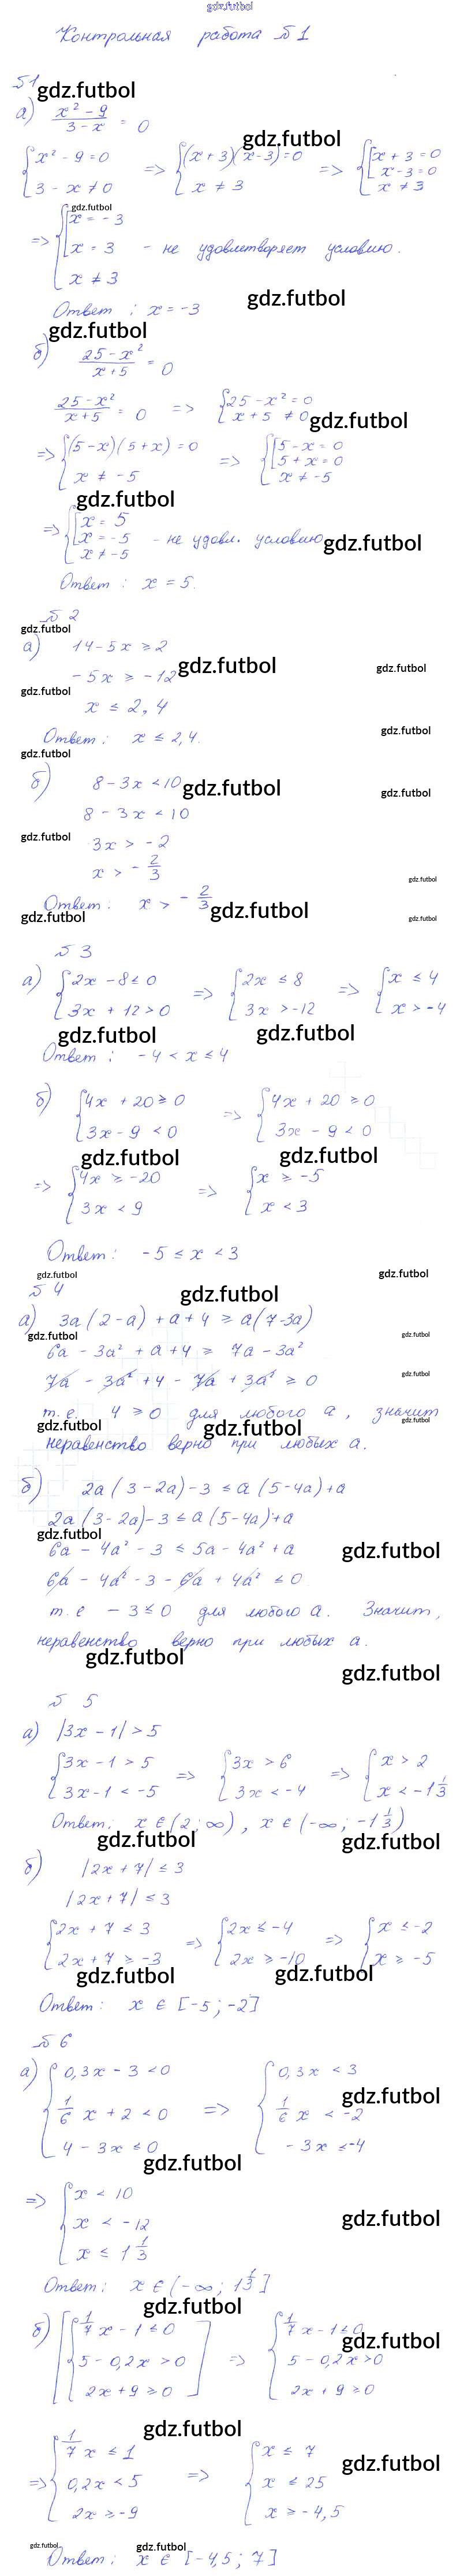 gdz.futbol
Контрольная работа №1
№1
gdz.futbol
а) (x² - 9)/(3 - x) = 0
gdz.futbol
{x² - 9 = 0 => {(x + 3)(x - 3) = 0 => {[x + 3 = 0
3 - x ≠ 0 x ≠ 3 x - 3 = 0
x ≠ 3
gdz.futbol
=> {[x = - 3
x = 3 - не удовлетворяет условию.
x ≠ 3
gdz.futbol
Ответ : x = -3
gdz.futbol
б) (25 - x²)/(x + 5) = 0
(25 - x²)/(x + 5) = 0 => {25 - x² = 0
x + 5 ≠ 0
gdz.futbol
=> {(5 - x)(5 + x) = 0 => {[5 - x = 0
5 + x = 0
x ≠ -5 x ≠ -5
gdz.futbol
=> {[x = 5
x = -5 - не удовл. условию
x ≠ -5
gdz.futbol
Ответ : x = 5.
№ 2
gdz.futbol
а) 14 - 5x ≥ 2
gdz.futbol gdz.futbol
- 5x ≥ -12
gdz.futbol
x ≤ 2,4
gdz.futbol
Ответ : x ≤ 2,4.
gdz.futbol
б) 8 - 3x < 10
gdz.futbol gdz.futbol
8 - 3x < 10
gdz.futbol
3x > -2
x > - 2/3
gdz.futbol
Ответ : x > - 2/3
gdz.futbol gdz.futbol gdz.futbol
№ 3
а) {2x - 8 ≤ 0 => {2x ≤ 8 => {x ≤ 4
3x + 12 > 0 3x > -12 x > -4
gdz.futbol gdz.futbol
Ответ : -4 < x ≤ 4
б) {4x + 20 ≥ 0 => {4x + 20 ≥ 0
3x - 9 < 0 3x - 9 < 0
gdz.futbol gdz.futbol
=> {4x ≥ -20 => {x ≥ -5
3x < 9 x < 3
Ответ : -5 ≤ x < 3
gdz.futbol gdz.futbol
№ 4
gdz.futbol
а) 3a(2 - a) + a + 4 ≥ a(7 - 3a)
gdz.futbol gdz.futbol
6a - 3a² + a + 4 ≥ 7a - 3a²
gdz.futbol
7a - 3a² + 4 - 7a + 3a² ≥ 0
т.е. 4 ≥ 0 для любого a, значит
gdz.futbol gdz.futbol gdz.futbol
неравенство верно при любых a.
б) 2a(3 - 2a) - 3 ≤ a(5 - 4a) + a
2a(3 - 2a) - 3 ≤ a(5 - 4a) + a
gdz.futbol
6a - 4a² - 3 ≤ 5a - 4a² + a
gdz.futbol
6a - 4a² - 3 - 6a + 4a² ≤ 0
т.е - 3 ≤ 0 для любого a. Значит,
неравенство верно при любых a.
gdz.futbol
gdz.futbol
№ 5
а) |3x - 1| > 5
{3x - 1 > 5 => {3x > 6 => {x > 2
3x - 1 < -5 3x < -4 x < -1 1/3
Ответ : x ∈ (2; ∞), x ∈ (-∞; -1 1/3)
gdz.futbol gdz.futbol
б) |2x + 7| ≤ 3
|2x + 7| ≤ 3
{2x + 7 ≤ 3 => {2x ≤ -4 => {x ≤ -2
2x + 7 ≥ -3 2x ≥ -10 x ≥ -5
gdz.futbol gdz.futbol
Ответ : x ∈ [-5; -2]
№ 6
а) {0,3x - 3 < 0 => {0,3x < 3
gdz.futbol
1/6 x + 2 < 0 1/6 x < -2
4 - 3x ≤ 0 - 3x ≤ -4
gdz.futbol
=> {x < 10
gdz.futbol
x < -12
x ≤ 1 1/3
Ответ : x ∈ (-∞; 1 1/3]
gdz.futbol
б) [{1/7 x - 1 ≤ 0 ] => {1/7 x - 1 ≤ 0
gdz.futbol
5 - 0,2x > 0 5 - 0,2x > 0
2x + 9 ≥ 0 2x + 9 ≥ 0
gdz.futbol
=> {1/7 x ≤ 1 => {x ≤ 7
gdz.futbol
0,2x < 5 x ≤ 25
2x ≥ -9 x ≥ -4,5
gdz.futbol gdz.futbol
Ответ : x ∈ [-4,5; 7]